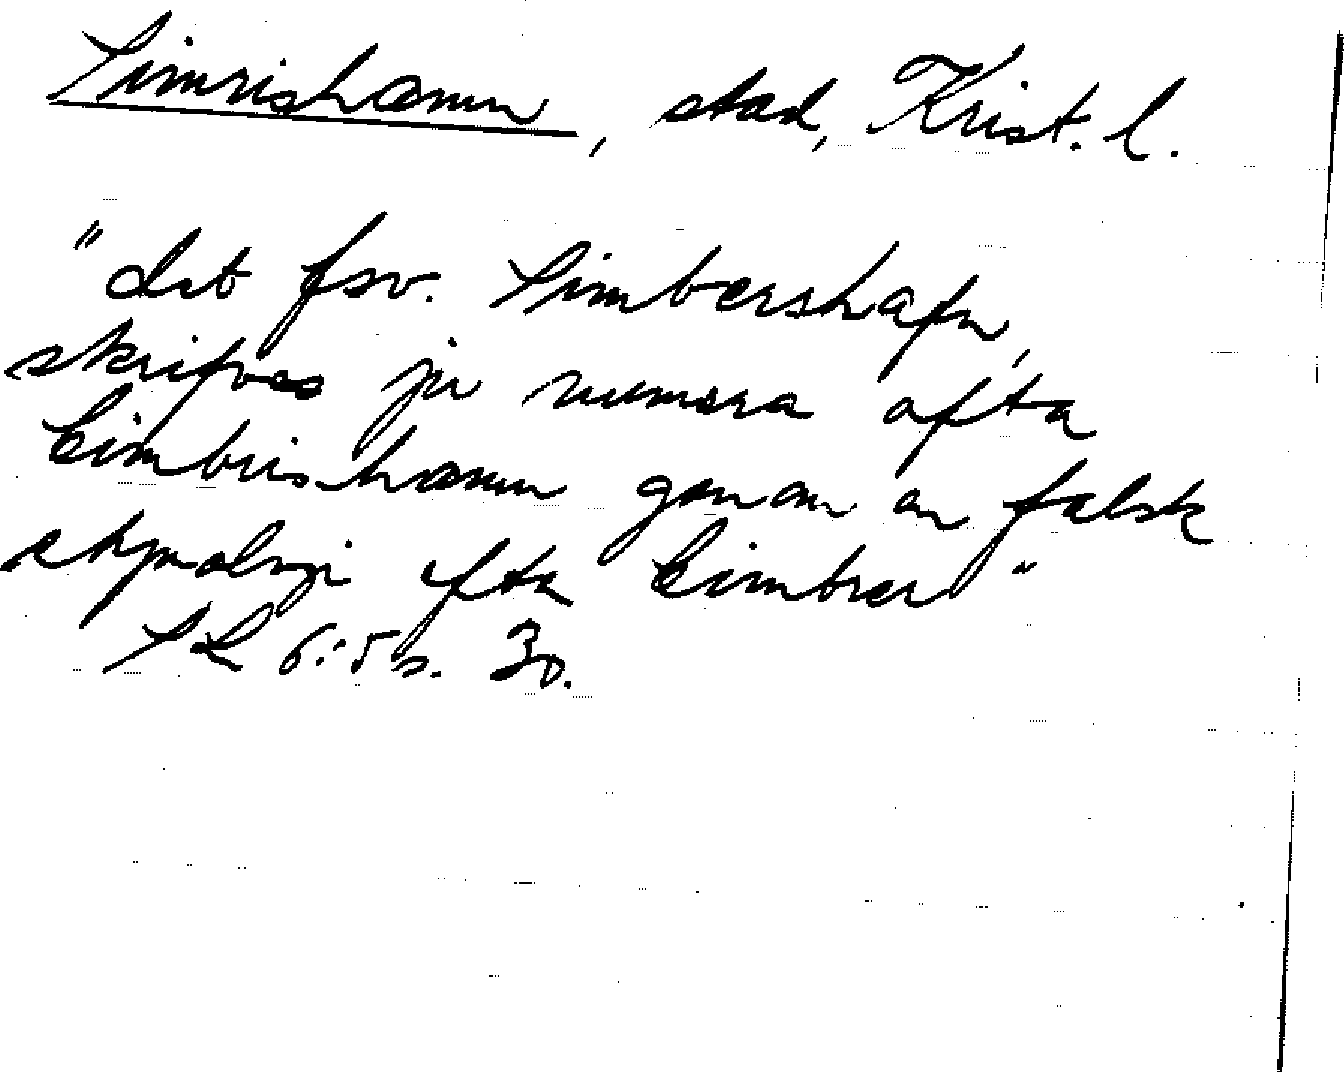 Simrishamn, stad, Krist. l.
"det fsv. Simbershafn,
skrifves ju numera ofta
Cimbrishamn genom en falsk
etymologi efter Cimbrer"
SL 6:5 s. 30.